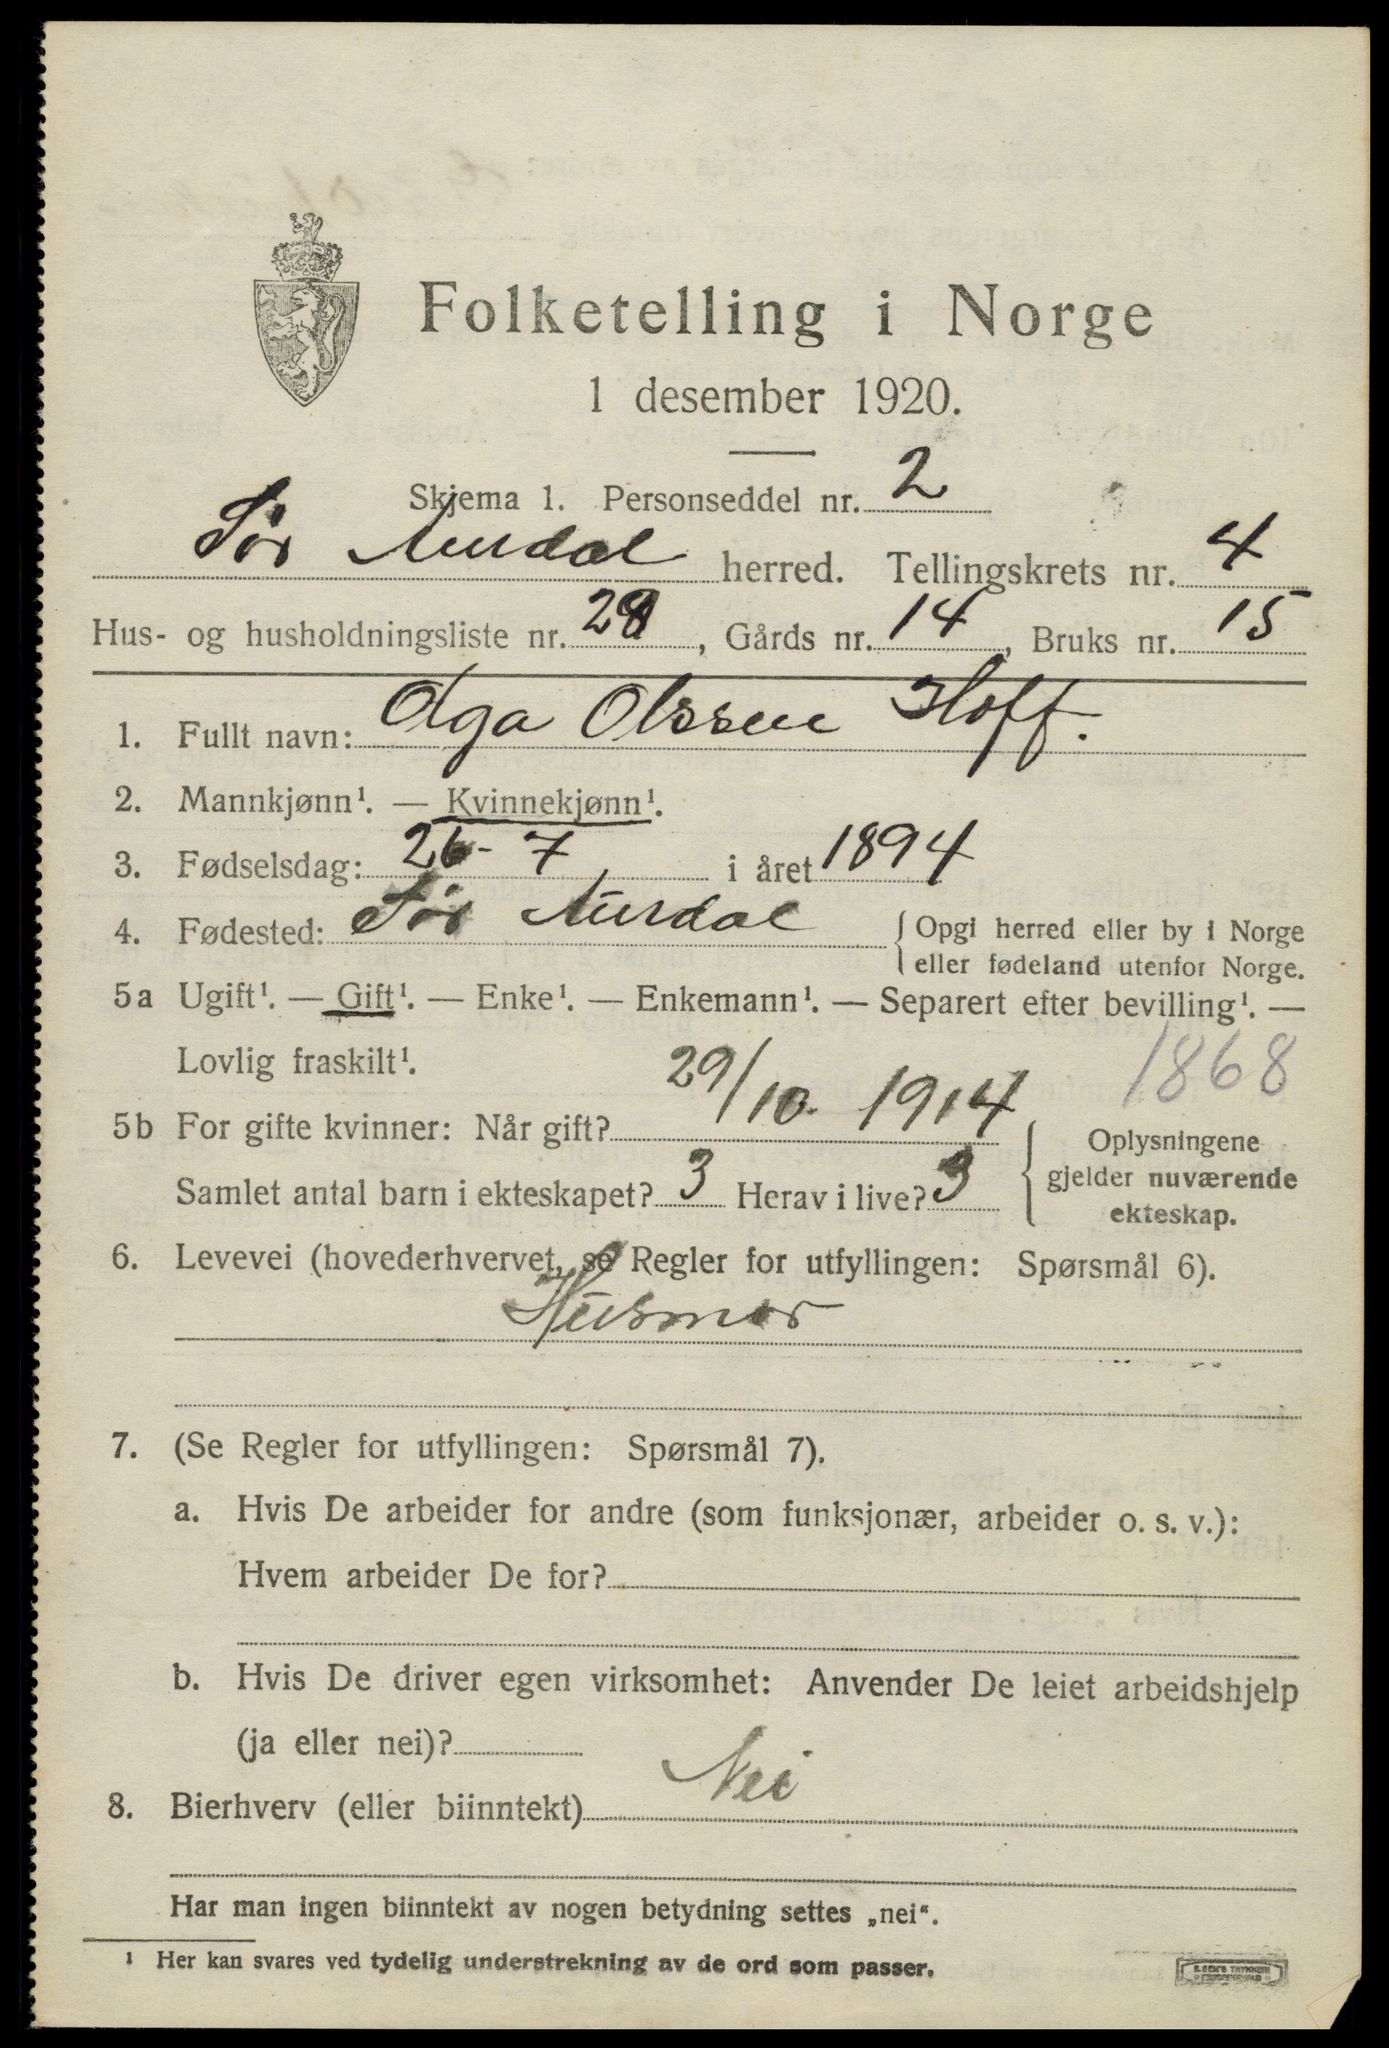 Folketelling i Norge
1 desember 1920.
Skjema 1. Personseddel nr. 2
Sør Aurdal herred. Tellingskrets nr. 4
Hus- og husholdningsliste nr. 28, Gårds nr. 14, Bruks nr. 15
1. Fullt navn: Olga Olssen Hoff.
2. Mannkjønn¹. — Kvinnekjønn¹.
3. Fødselsdag: 26-7 i året 1894
4. Fødested: Sør Aurdal { Opgi herred eller by i Norge
eller fødeland utenfor Norge.
5a Ugift¹. — Gift¹. — Enke¹. — Enkemann¹. — Separert efter bevilling¹. —
Lovlig fraskilt¹. 1868
5b For gifte kvinner: Når gift? 29/10. 1914
Samlet antal barn i ekteskapet? 3 Herav i live? 3
{ Oplysningene
gjelder nuværende
ekteskap.
6. Levevei (hovederhvervet, se Regler for utfyllingen: Spørsmål 6).
Husmor
7. (Se Regler for utfyllingen: Spørsmål 7).
a. Hvis De arbeider for andre (som funksjonær, arbeider o. s. v.):
Hvem arbeider De for?
b. Hvis De driver egen virksomhet: Anvender De leiet arbeidshjelp
(ja eller nei)?
8. Bierhverv (eller biinntekt) Nei
Har man ingen biinntekt av nogen betydning settes „nei“.
¹ Her kan svares ved tydelig understrekning av de ord som passer.